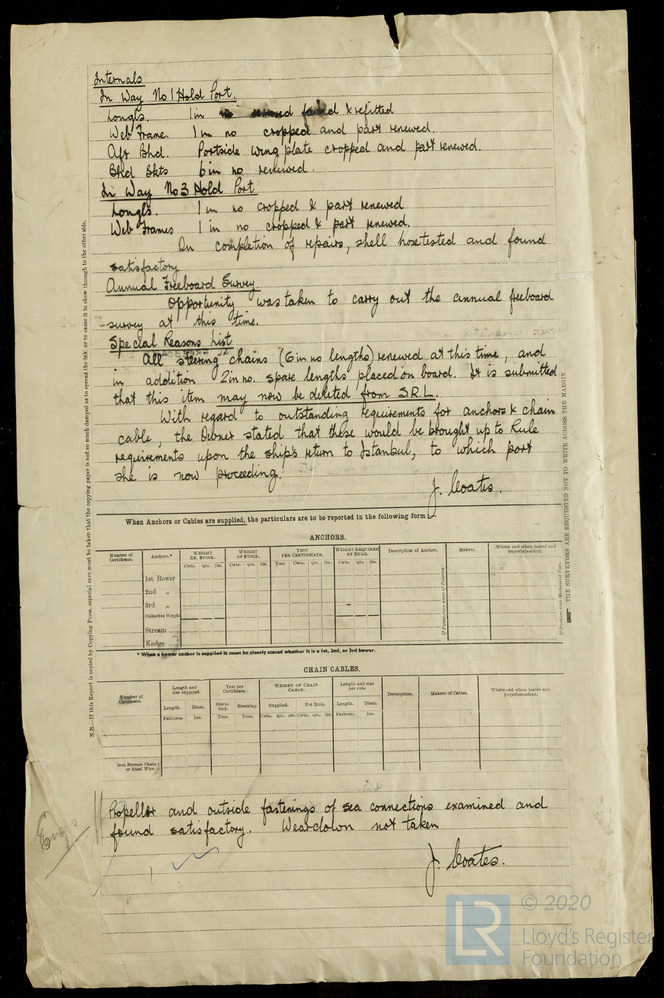 Internals
In Way No 1 Hold Port.
Longls. 1 in no faired & refitted
Web Frame. 1 in no cropped and part renewed.
Aft Bhd. Portside wing plate cropped and part renewed.
Bhd Skts 6 in no renewed.
In Way No 3 Hold Port
Longls. 1 in no cropped & part renewed
Web Frames 1 in no cropped & part renewed.
On completion of repairs, shell hosetested and found
satisfactory
Annual Freeboard Survey.
Opportunity was taken to carry out the annual freeboard
survey at this time.
Special Reasons List
All steering chains (6 in no lengths) renewed at this time, and
in addition 2 in no. spare lengths placed on board. It is submitted
that this item may now be deleted from S.R.L.
With regard to outstanding requirements for anchors & chain
cable, the Owner stated that these would be brought up to Rule
requirements upon the ship's return to Istanbul, to which port
she is now proceeding.
J. Coates.
When Anchors or Cables are supplied, the particulars are to be reported in the following form:
ANCHORS.
Number of Certificate. Anchors.* WEIGHT EX. STOCK. WEIGHT OF STOCK. TEST PER CERTIFICATE. WEIGHT REQUIRED BY RULE. Description of Anchor. Makers. Where and when tested and Superintendent.
Cwts. qrs. lbs. Cwts. qrs. lbs. Tons Cwts. qrs. lbs. Cwts. qrs. lbs.
1st Bower
2nd „
3rd „
Collective Weight
Stream
Kedge
* When a bower anchor is supplied it must be clearly stated whether it is a 1st, 2nd, or 3rd bower.
CHAIN CABLES.
Number of Certificate. Length and size supplied. Test per Certificate. WEIGHT OF CHAIN CABLE. Length and size per rule. Description. Makers of Cables. Where and when tested and Superintendent.
Length. Diam. Statutory. Breaking. Supplied. Per Rule. Length. Diam.
Fathoms. Ins. Tons. Tons. Cwts. qrs. lbs. Cwts. qrs. lbs. Fathoms. Ins.
Iron Stream Chain or Steel Wire
Propeller and outside fastenings of sea connections examined and
found satisfactory. Weardown not taken
J. Coates.
N.B.—If this Report is copied by Copying Press, especial care must be taken that the copying paper is not so much damped as to spread the ink or to cause it to show through to the other side.
THE SURVEYORS ARE REQUESTED NOT TO WRITE ACROSS THE MARGIN
LR © 2020
Lloyd's Register
Foundation